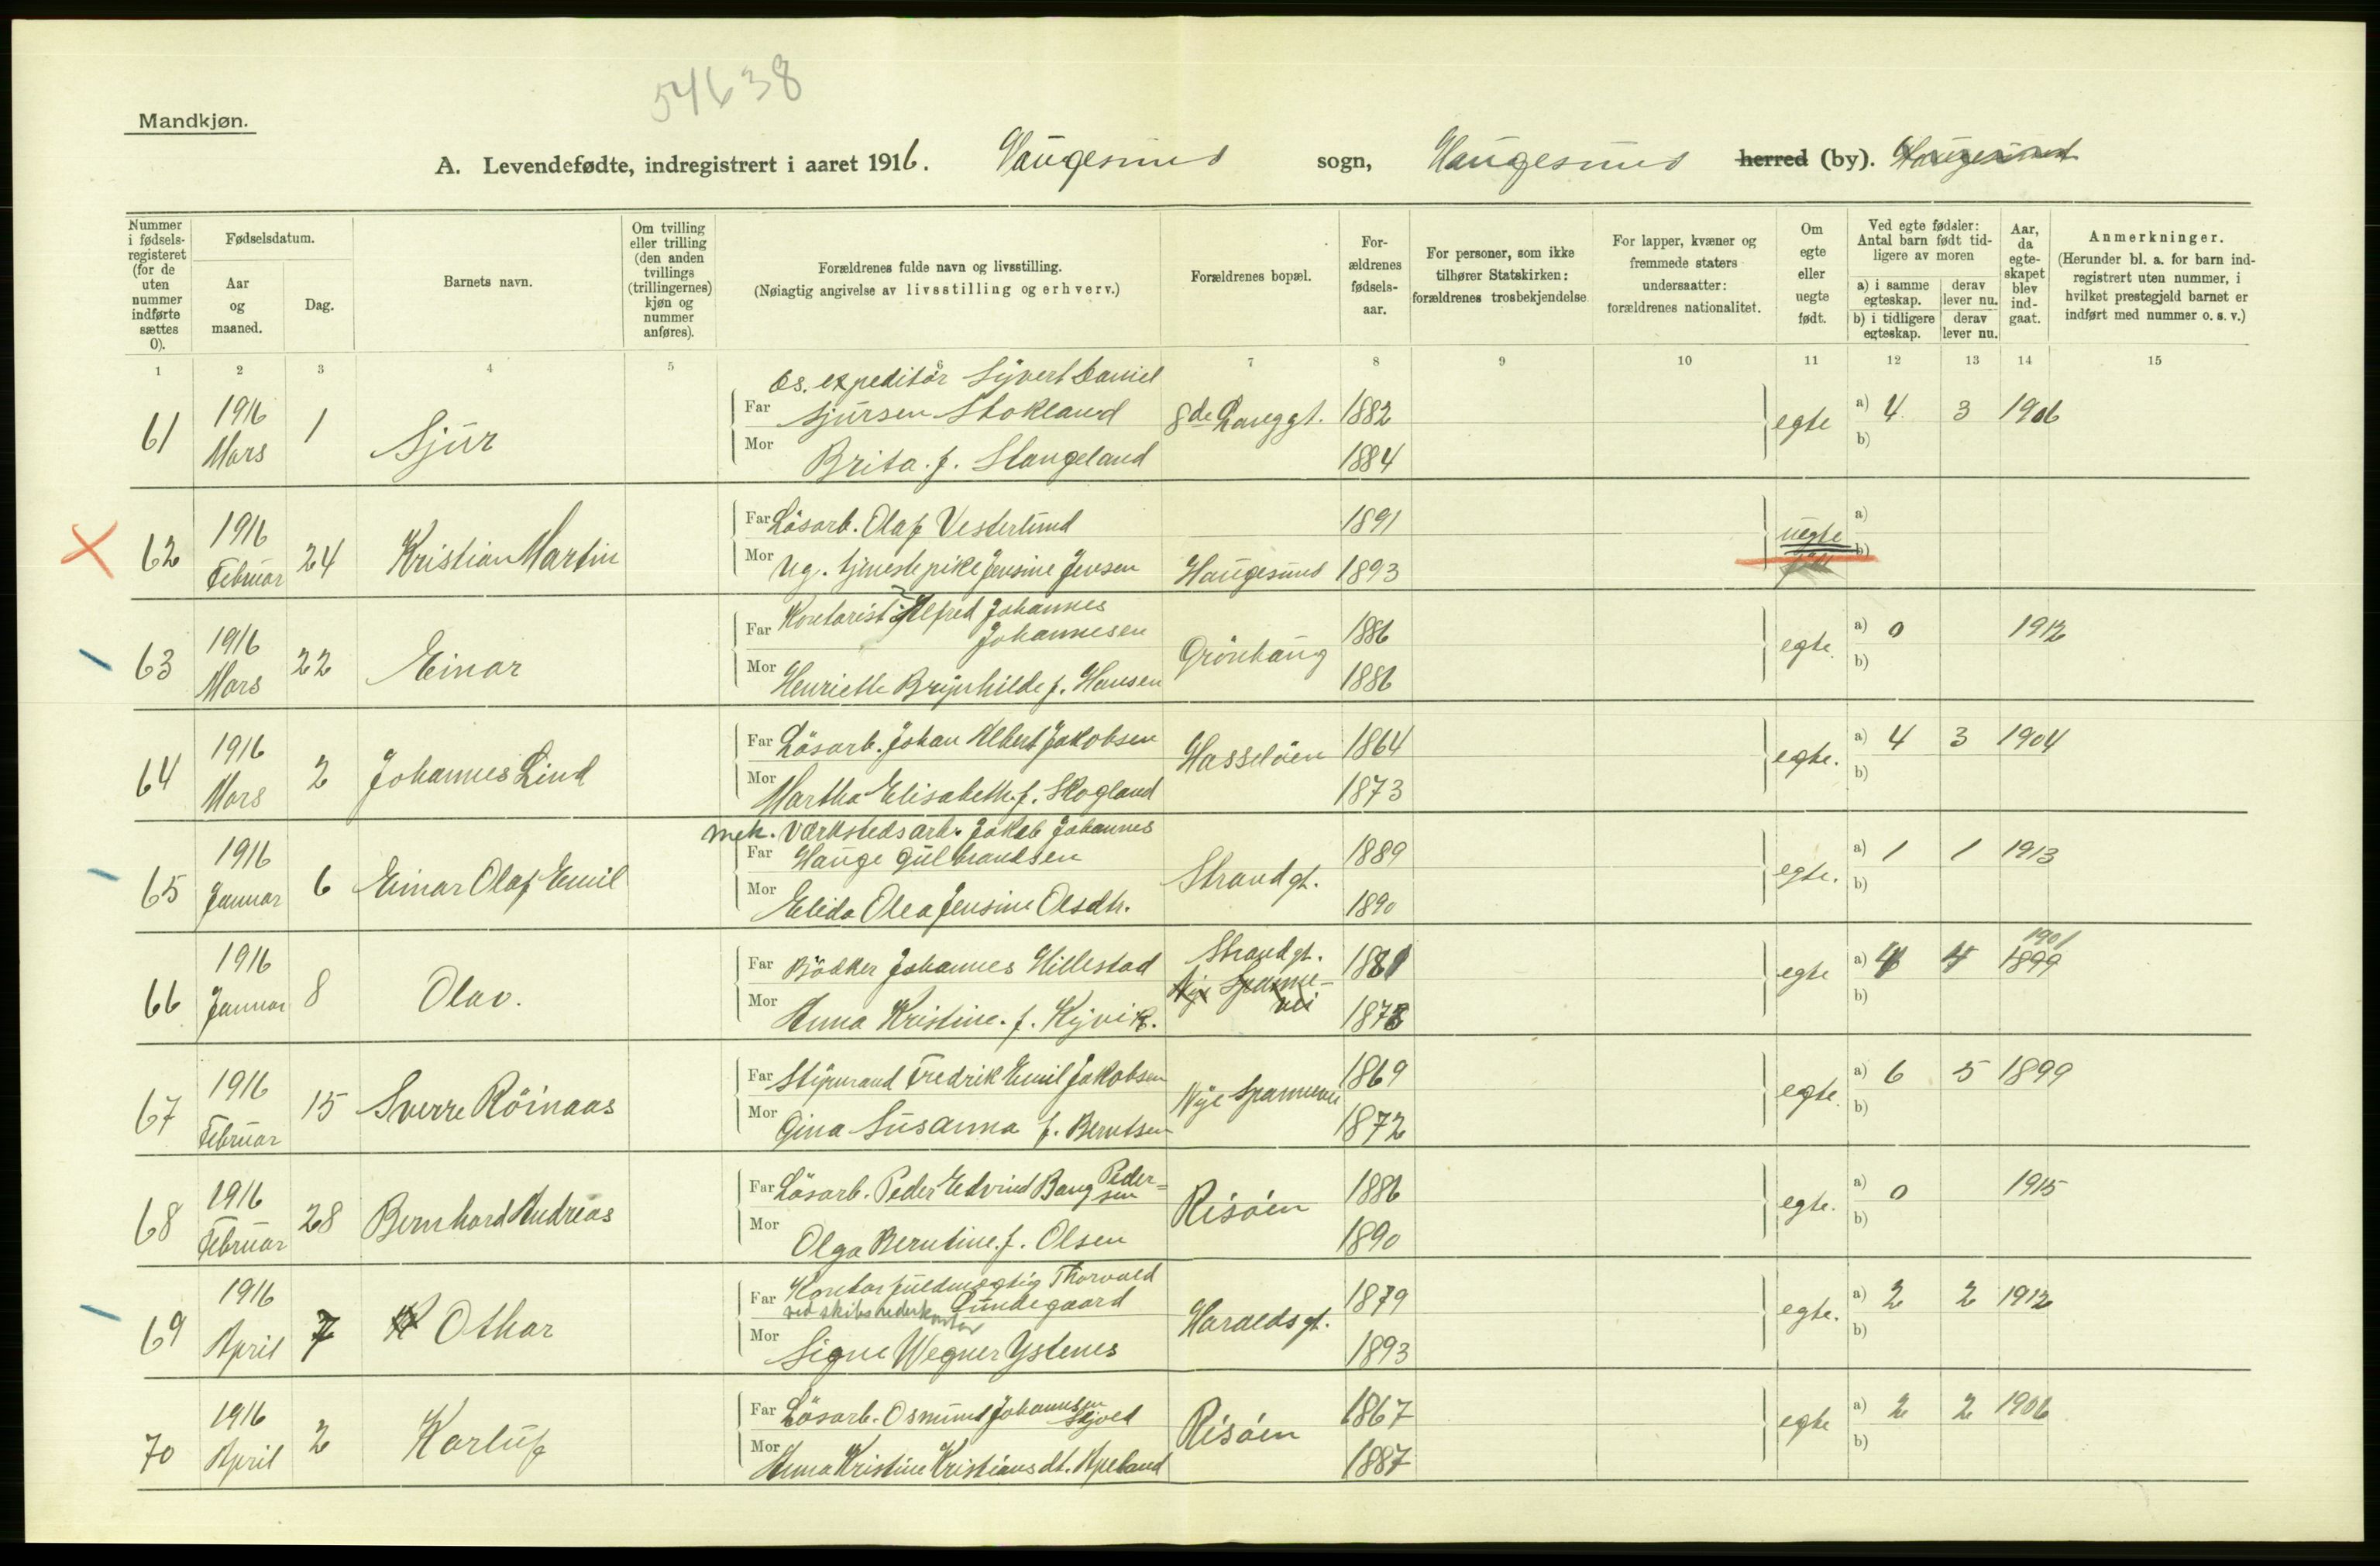 54638
Mandkjøn.
A. Levendefødte, indregistrert i aaret 1916. Haugesund sogn, Haugesund herred (by). Haugesund
Nummer i fødselsregisteret (for de uten nummer indførte sættes 0).
Fødselsdatum.
Aar og maaned.
Dag.
Barnets navn.
Om tvilling eller trilling (den anden tvillings (trillingernes) kjøn og nummer anføres).
Forældrenes fulde navn og livsstilling.
(Nøiagtig angivelse av livsstilling og erhverv.)
Forældrenes bopæl.
Forældrenes fødselsaar.
For personer, som ikke tilhører Statskirken: forældrenes trosbekjendelse
For lapper, kvæner og fremmede staters undersaatter: forældrenes nationalitet.
Om egte eller uegte født.
Ved egte fødsler: Antal barn født tidligere av moren
a) i samme egteskap.
derav lever nu.
b) i tidligere egteskap.
derav lever nu.
Aar, da egteskapet blev indgaat.
Anmerkninger.
(Herunder bl. a. for barn indregistrert uten nummer, i hvilket prestegjeld barnet er indført med nummer o. s. v.)
1 2 3 4 5 6 7 8 9 10 11 12 13 14 15
61 1916 Mars 1 Sjur
Far Ds. expeditør Sivert Daniel Sjursen Stokland 8de Langgt. 1882
Mor Brita. f. Stangeland 1884
egte a) 4 3 1906
b)
62 1916 Februar 24 Kristian Martin
Far Løsarb. Olaf Vesterlund 1891
Mor Ug. tjenestepike Jensine Jensen Haugesund 1893
uegte a)
b)
63 1916 Mars 22 Einar
Far Kontorist Alfred Johannes Johannesen Grönhaug 1886
Mor Henriette Brynhilde f. Hansen 1886
egte. a) 0 1912
b)
64 1916 Mars 2 Johannes Lind
Far Løsarb. Johan Albert Jakobsen Hasseløen 1864
Mor Martha Elisabeth. f. Skogland 1873
egte. a) 4 3 1904
b)
65 1916 Januar 6 Einar Olaf Emil
Far mek. Værkstedsarb. Jakob Johannes Hauge Gulbrandsen Strandgt. 1889
Mor Elida Olea Jensine Olsdtr. 1890
egte. a) 1 1 1913
b)
66 1916 Januar 8 Olav.
Far Bödker Johannes Hillestad Strandgt. 1881
Nye Spannevei
Mor Anna Kristine. f. Kyvik. 1878
egte a) 4 4 1901 1899
b)
67 1916 Februar 15 Sverre Röinaas
Far Styrmand Fredrik Emil Jakobsen Nye Spannevei 1869
Mor Gina Susanna f. Berntsen 1872
egte. a) 6 5 1899
b)
68 1916 Februar 28 Bernhard Andreas
Far Løsarb. Peder Edvind Bang Pedersen Risöin 1886
Mor Olga Berntine. f. Olsen 1890
egte. a) 0 1915
b)
69 1916 April 7 Othar
Far Kontorfuldmægtig Thorvald Lundegaard
ved skibsrederkontor Haraldsgt. 1879
Mor Signe Wegner Ystenes 1893
egte. a) 2 2 1912
b)
70 1916 April 2 Karluf
Far Løsarb. Osmund Johannesen Skjold Risöin 1867
Mor Anna Kristine Kristiansdt. Apeland 1887
egte a) 2 2 1906
b)